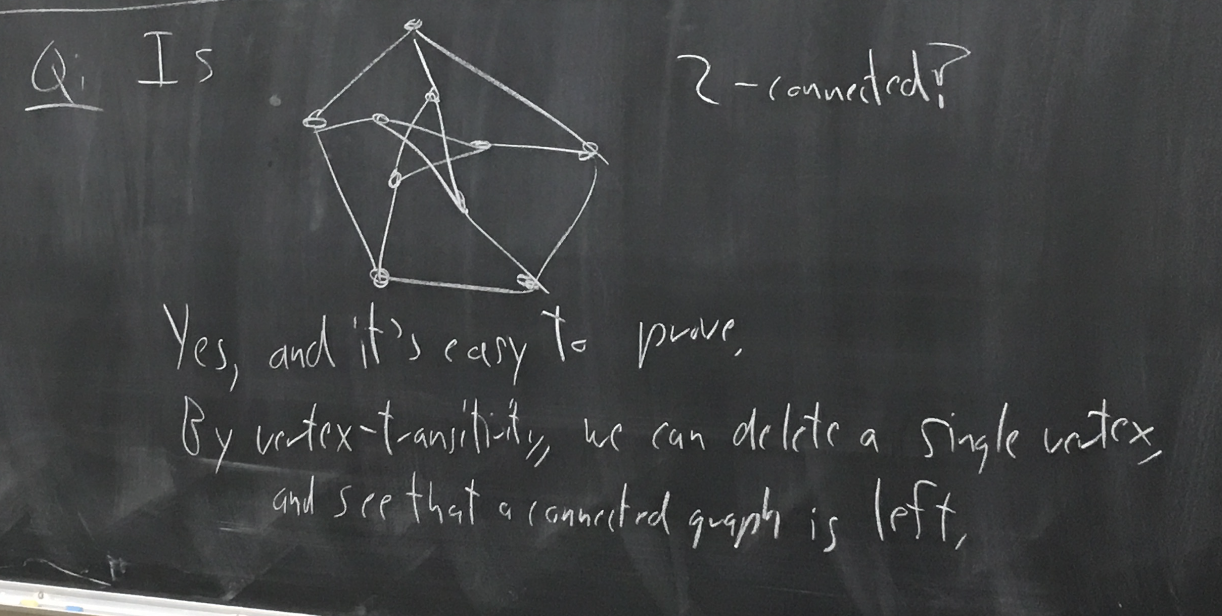 Q: Is 2-connected?
Yes, and it's easy to prove.
By vertex-transitivity, we can delete a single vertex,
and see that a connected graph is left.